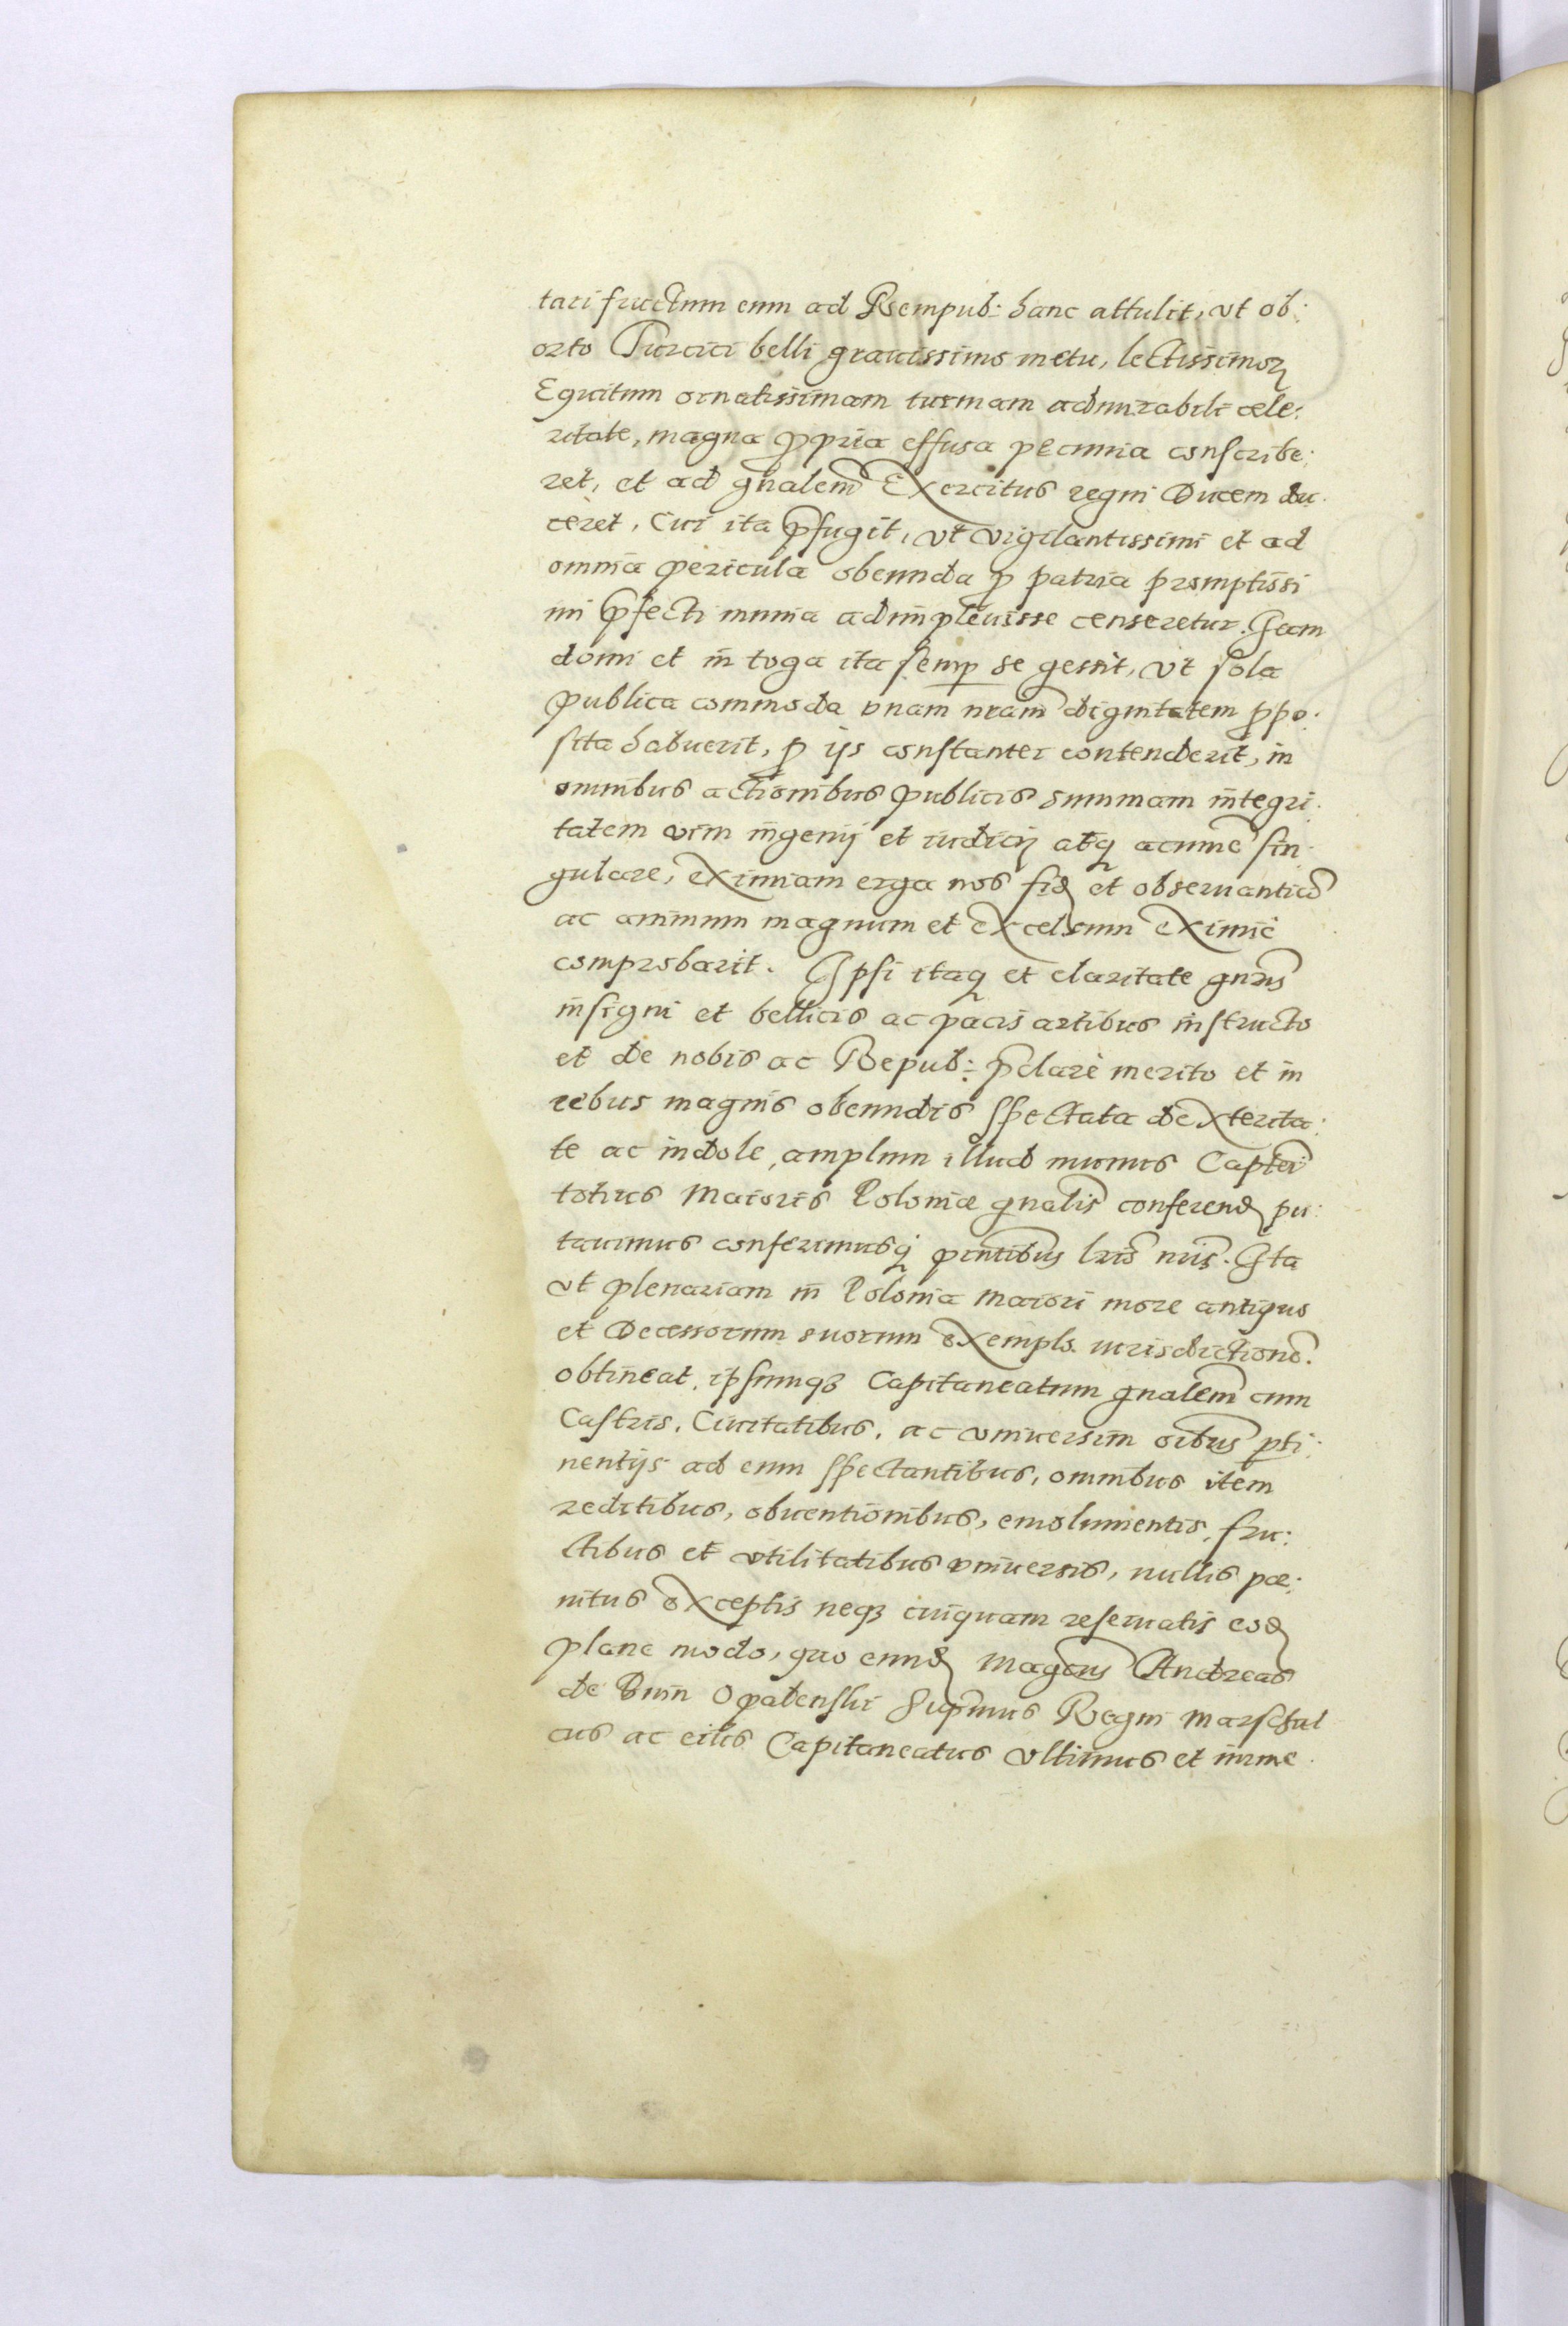 tari fructum eum ad Rempub: hanc attulit, vt ob:
orto Turcici belli grauissimo metu, lectissimoꝝ
Equitum ornatissimam turmam admirabili cele:
ritate, magna ꝓpria effusa pecunia conscribe:
ret, et ad gn̄alem Exercitus regni Ducem du:
ceret, Cui ita p̄fugit, vt vigilantissimi et ad
omnia pericula obeunda ꝓ patria promptissi
mi p̄fecti munia adimpleuisse censeretur. Iam
domi et in toga ita semꝑ se gessit, vt sola
publica commoda vnam nr̄am dignitatem ꝓpo:
sita habuerit, ꝓ ijs constanter contenderit, in
omnibus actionibus publicis summam integri:
tatem vim ingenij et iudicij atq̨ acumē sin:
gulare, eximiam erga nos fid̨ et obseruantiā
ac animum magnum et excelsum eximiè
comprobarit. Ipsi itaq̨ et claritate gn̄ris
insigni et bellicis ac pacis artibus instructo
et de nobis ac Repub: p̄clarè merito et in
rebus magnis obeundis spectata dexterita:
te ac indole, amplum illud munus Captei
totius Maioris Poloniæ gn̄alis conferend̨ pu:
tauimus conferimusq̨ pn̄tibus lr̄is nr̄is. Ita
vt plenariam in Polonia Maiori more antiquo
et Decessorum suorum exemplo iurisdictionē.
obtineat, ipsumqȝ Capitaneatum gn̄alem cum
Castris, Ciuitatibus, ac vniuersim oībus ꝑti:
nentijs ad eum spectantibus, omnibus item
reditibus, obuentionibus, emolumentis, fru:
ctibus et vtilitatibus vniuersis, nullis pæ:
nitus exceptis neqȝ cuiquam reseruatis eod̨
plane modo, quo eund̨ Magcus Andreas
de Bnin Opalenski Suprmus Regni Marschal
cus ac eius Capitaneatus vltimus et imme: